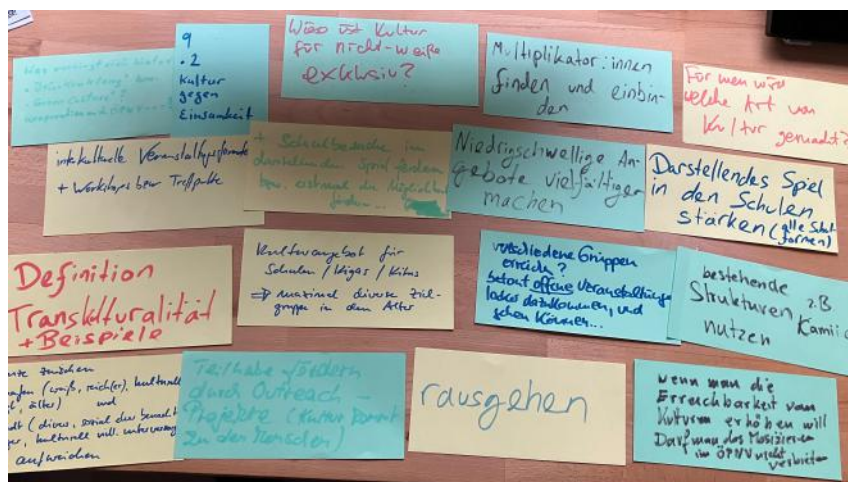 9
.2
Kultur
gegen
Einsamkeit
Wieso ist Kultur
für nicht-weiße
exklusiv?
Multiplikator:innen
finden und einbin-
den
Für wen wird
welche Art von
Kultur gemacht?
interkulturelle Veranstaltungsformate
+ Workshops bzw Treffpunkte
+ Schulbesuche im
darstellenden Spiel fördern
bzw. erstmal die Möglichkeit
finden...
Niedrigschwellige An-
gebote vielfältiger
machen
Darstellendes Spiel
in den Schulen
stärken (alle Schul
formen)
Definition
Transkulturalität
+ Beispiele
Kulturangebot für
Schulen / Kigas / Kitas
⇒ maximal diverse Ziel-
gruppe in dem Alter
verschiedene Gruppen
erreichen?
betont offene Veranstaltungen
locker dazukommen, und
gehen können...
bestehende
Strukturen z.B.
nutzen
zwischen
(weiß, reich(er), kulturell
älter) und
(divers, sozial
kulturell
aufweichen
Teilhabe fördern
durch Outreach-
Projekte (Kultur kommt
zu den Menschen)
rausgehen
wenn man die
Erreichbarkeit von
erhöhen will
Darf man das Musizieren
im ÖPNV nicht
verbieten